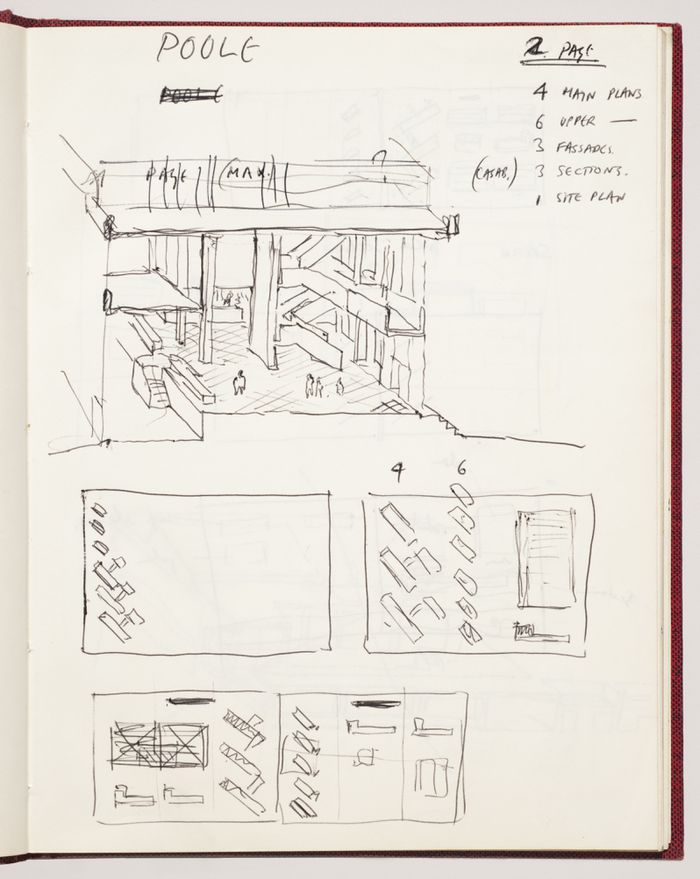 POOLE
POOLE
2 PAGE
4 MAIN PLANS
6 UPPER —
3 FASSADES.
(CASAB.) 3 SECTIONS.
1 SITE PLAN
PAGE (MAX.)
4 6